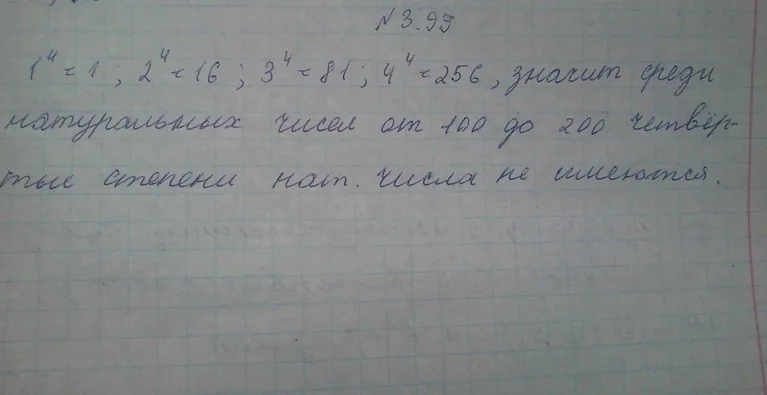 №3.99
1⁴=1; 2⁴=16; 3⁴=81; 4⁴=256, значит среди
натуральных чисел от 100 до 200 четвёр-
тые степени нат. числа не имеются.